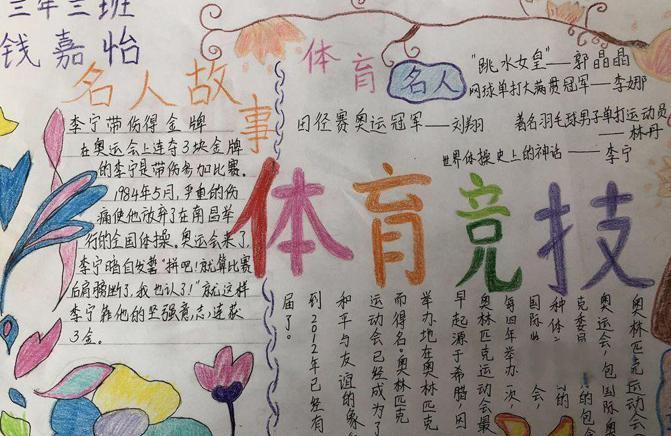 三年三班
钱嘉怡
名人故事
李宁带伤得金牌
在奥运会上连夺3块金牌
的李宁是带伤参加比赛.
1984年5月,严重的伤
痛使他放弃了在南昌举
行的全国体操。奥运会来了,
李宁暗自发誓"拼吧!就算比赛
后肩膀断了,我也认了!"就这样
李宁靠他的坚强意志,连获
3金。
体育
名人
"跳水女皇"——郭晶晶
网球单打大满贯冠军——李娜
田径赛奥运冠军——刘翔
著名羽毛球男子单打运动员
——林丹
世界体操史上的神话——李宁
体育竞技
奥林匹克运动会
奥运会,包国际奥
克委员 的包含
种体
国际 会,
每四年举办一次,
奥林匹克运动会最
早起源于希腊,因
举办地在奥林匹克
而得名。奥林匹克
运动会已经成为了
和平与友谊的象
到2012年已经有
届了。